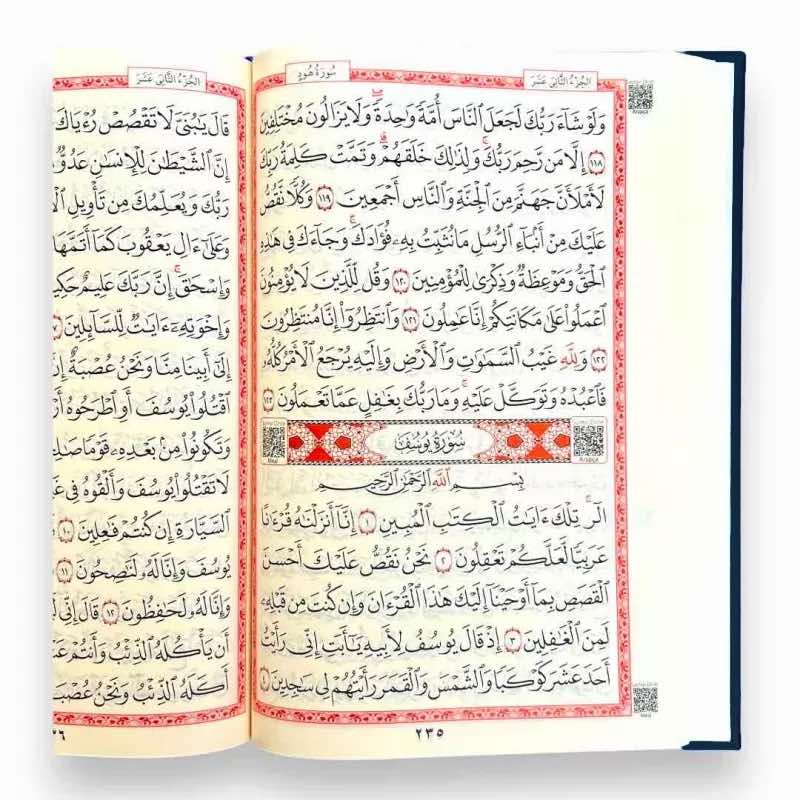 الجُزْءُ الثَّانِى عَشَرَ سُورَةُ هُودٍ
وَلَوْ شَآءَ رَبُّكَ لَجَعَلَ ٱلنَّاسَ أُمَّةً وَٰحِدَةً وَلَا يَزَالُونَ مُخْتَلِفِينَ
١١٨ إِلَّا مَن رَّحِمَ رَبُّكَ ۚ وَلِذَٰلِكَ خَلَقَهُمْ ۗ وَتَمَّتْ كَلِمَةُ رَبِّكَ
لَأَمْلَأَنَّ جَهَنَّمَ مِنَ ٱلْجِنَّةِ وَٱلنَّاسِ أَجْمَعِينَ ١١٩ وَكُلًّا نَّقُصُّ
عَلَيْكَ مِنْ أَنۢبَآءِ ٱلرُّسُلِ مَا نُثَبِّتُ بِهِۦ فُؤَادَكَ ۚ وَجَآءَكَ فِى هَٰذِهِ
ٱلْحَقُّ وَمَوْعِظَةٌ وَذِكْرَىٰ لِلْمُؤْمِنِينَ ١٢٠ وَقُل لِّلَّذِينَ لَا يُؤْمِنُونَ
ٱعْمَلُوا۟ عَلَىٰ مَكَانَتِكُمْ إِنَّا عَٰمِلُونَ ١٢١ وَٱنتَظِرُوٓا۟ إِنَّا مُنتَظِرُونَ
١٢٢ وَلِلَّهِ غَيْبُ ٱلسَّمَٰوَٰتِ وَٱلْأَرْضِ وَإِلَيْهِ يُرْجَعُ ٱلْأَمْرُ كُلُّهُۥ
فَٱعْبُدْهُ وَتَوَكَّلْ عَلَيْهِ ۚ وَمَا رَبُّكَ بِغَٰفِلٍ عَمَّا تَعْمَلُونَ ١٢٣
سُورَةُ يُوسُفَ
بِسْمِ ٱللَّهِ ٱلرَّحْمَٰنِ ٱلرَّحِيمِ
الٓر ۚ تِلْكَ ءَايَٰتُ ٱلْكِتَٰبِ ٱلْمُبِينِ ١ إِنَّآ أَنزَلْنَٰهُ قُرْءَٰنًا
عَرَبِيًّا لَّعَلَّكُمْ تَعْقِلُونَ ٢ نَحْنُ نَقُصُّ عَلَيْكَ أَحْسَنَ
ٱلْقَصَصِ بِمَآ أَوْحَيْنَآ إِلَيْكَ هَٰذَا ٱلْقُرْءَانَ وَإِن كُنتَ مِن قَبْلِهِۦ
لَمِنَ ٱلْغَٰفِلِينَ ٣ إِذْ قَالَ يُوسُفُ لِأَبِيهِ يَٰٓأَبَتِ إِنِّى رَأَيْتُ
أَحَدَ عَشَرَ كَوْكَبًا وَٱلشَّمْسَ وَٱلْقَمَرَ رَأَيْتُهُمْ لِى سَٰجِدِينَ ٤
٢٣٥
الجُزْءُ الثَّانِى عَشَرَ
قَالَ يَٰبُنَىَّ لَا تَقْصُصْ رُءْيَاكَ
إِنَّ ٱلشَّيْطَٰنَ لِلْإِنسَٰنِ عَدُوٌّ
رَبُّكَ وَيُعَلِّمُكَ مِن تَأْوِيلِ
وَعَلَىٰٓ ءَالِ يَعْقُوبَ كَمَآ أَتَمَّهَا
وَإِسْحَٰقَ ۚ إِنَّ رَبَّكَ عَلِيمٌ
وَإِخْوَتِهِۦٓ ءَايَٰتٌ لِّلسَّآئِلِينَ ٧
إِلَىٰٓ أَبِينَا مِنَّا وَنَحْنُ عُصْبَةٌ
ٱقْتُلُوا۟ يُوسُفَ أَوِ ٱطْرَحُوهُ
وَتَكُونُوا۟ مِنۢ بَعْدِهِۦ قَوْمًا
لَا تَقْتُلُوا۟ يُوسُفَ وَأَلْقُوهُ فِى
ٱلسَّيَّارَةِ إِن كُنتُمْ فَٰعِلِينَ ١٠
يُوسُفَ وَإِنَّا لَهُۥ لَنَٰصِحُونَ ١١
وَإِنَّا لَهُۥ لَحَٰفِظُونَ ١٢ قَالَ إِنِّى
أَن يَأْكُلَهُ ٱلذِّئْبُ وَأَنتُمْ
أَكَلَهُ ٱلذِّئْبُ وَنَحْنُ عُصْبَةٌ